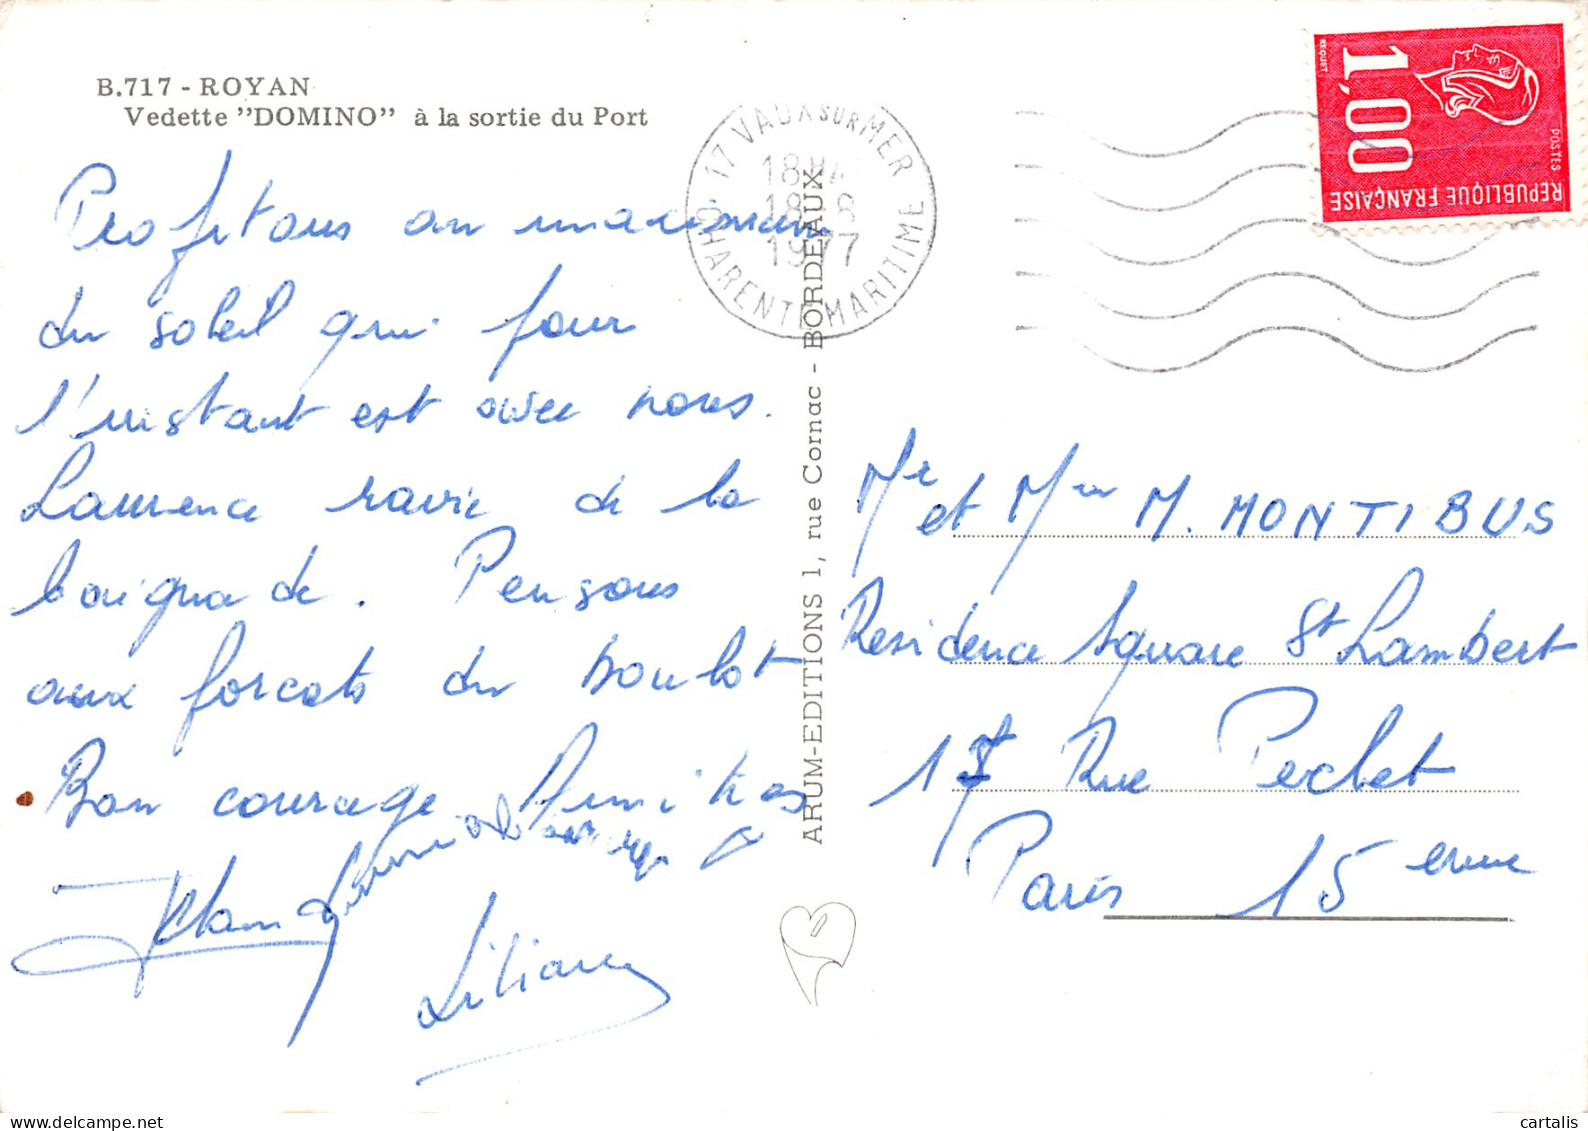 B.717 - ROYAN
Vedette "DOMINO" à la sortie du Port
Profitons au maximum
du soleil qui pour
l'instant est avec nous.
Laurence ravie de la
baignade. Pensons
aux forcats du boulot
Bon courage Amitiés
Liliane
17 VAUX SUR MER
CHARENTE MARITIME
18H
18-8
1977
ARUM-EDITIONS 1, rue Cornac - BORDEAUX
1,00
REPUBLIQUE FRANÇAISE
POSTES
BEQUET
Mr et Mme M. MONTIBUS
Residence Square St Lambert
17 Rue Pechet
Paris 15 eme
cartalis